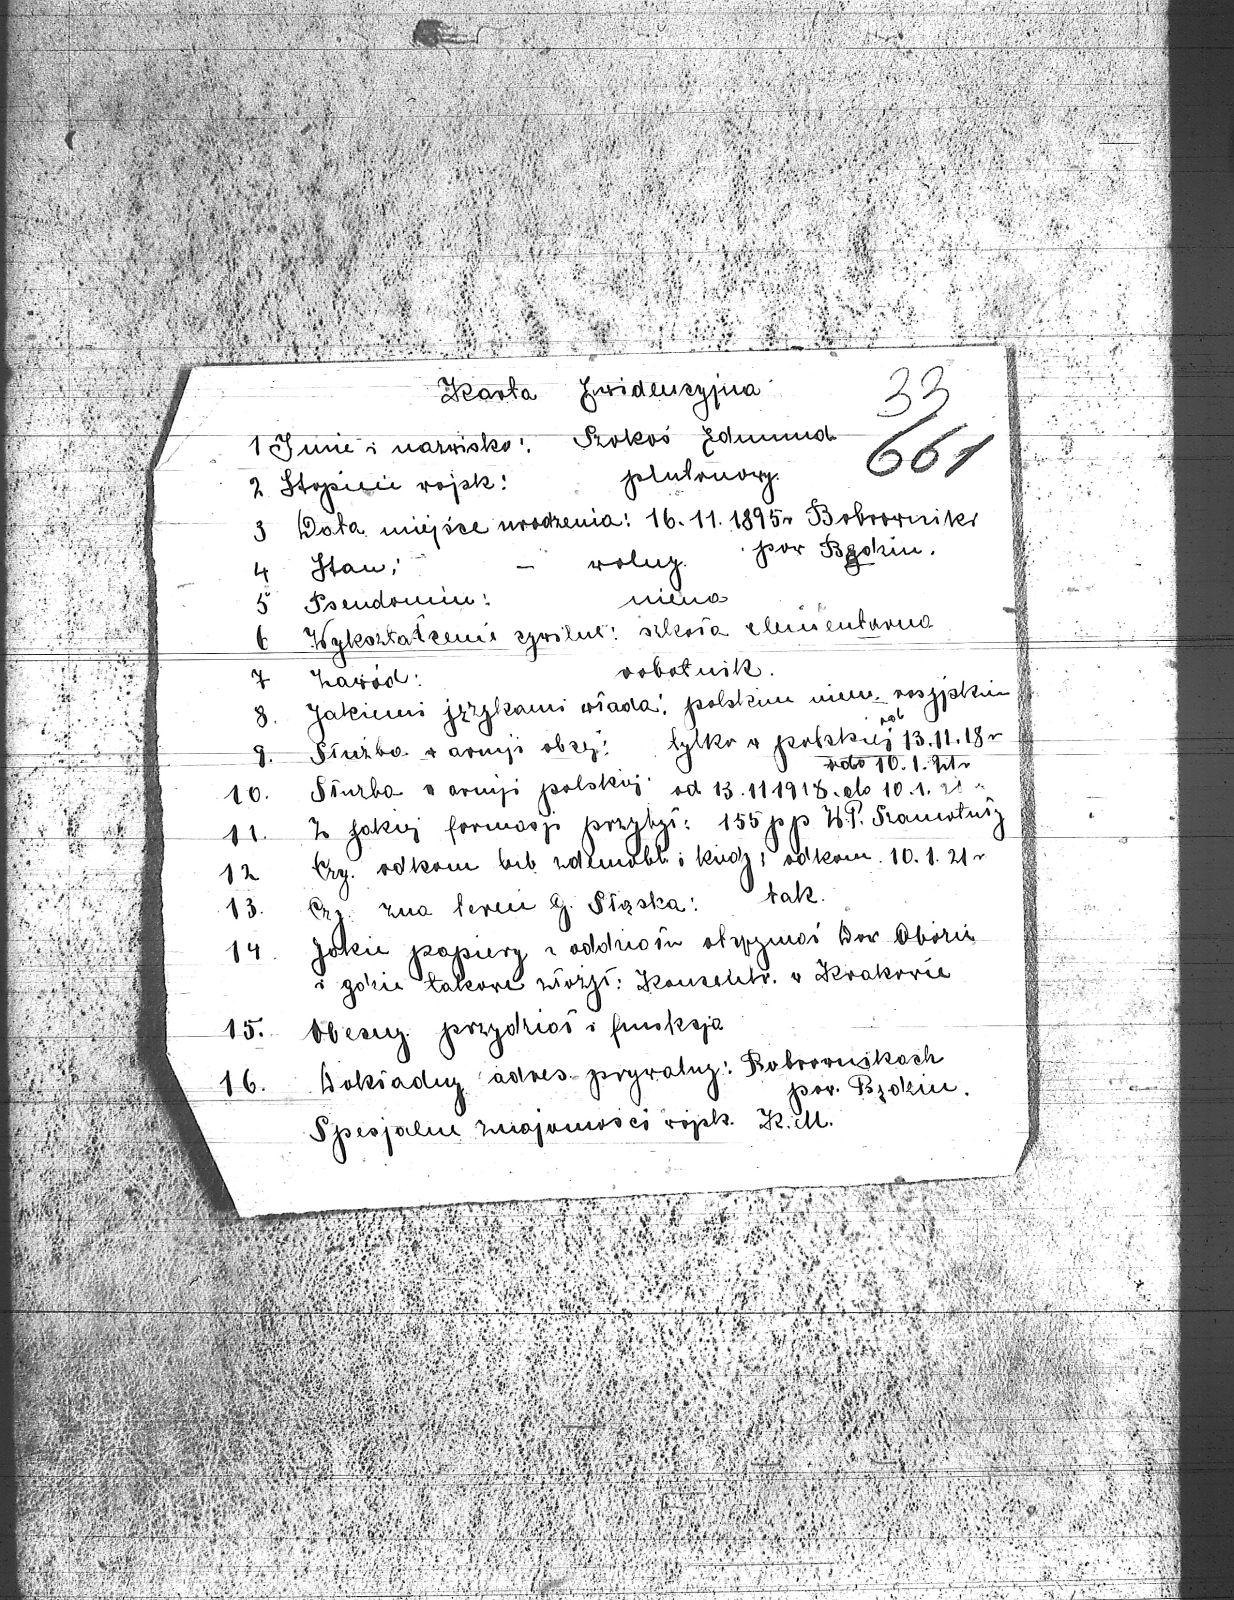 Karta Ewidencyjna
33
661
1 Imie i nazwisko: Szokoś Edmund
2 Stopień wojsk: plutonowy.
3 Data miejsce urodzenia: 16.11.1895r Bobrowniki
pow Będzin.
4 Stan: – wolny.
5 Pseudonim: niema
6 Wykształcenie cywilne: szkoła elementarna
7 Zawód: robotnik.
8. Jakiemi językami włada: polskim niem. rosyjskim
9. Służba w armji obcej: tylko w polskiej od 13.11.18r
do 10.1.21r
10. Służba w armji polskiej: od 13.11 1918. do 10.1. 21 r
11. Z jakiej formacji przybył: 155 p p W.P. Szamotuły
12 Czy. odkom lub zdemobl. i kiedy: odkom. 10.1.21r
13. Czy. zna teren G. Śląska: tak.
14. Jakie papiery z oddziału otrzymał Dow Obozu
i gdzie takowe złożył: w Krakowie
15. Obecny przydział i funkcja
16. Dokładny adres prywatny: Bobrownikach
pow. Będzin.
Specjalne znajomości wojsk. K.M.